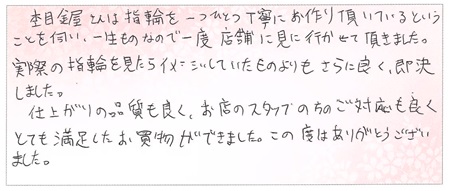 杢目金屋さんは指輪を一つひとつ丁寧にお作り頂いているという
ことを伺い、一生ものなので一度店舗に見に行かせて頂きました。
実際の指輪を見たらイメージしていたものよりもさらに良く、即決
しました。
仕上がりの品質も良く、お店のスタッフの方のご対応も良く
とても満足したお買物ができました。この度はありがとうござい
ました。